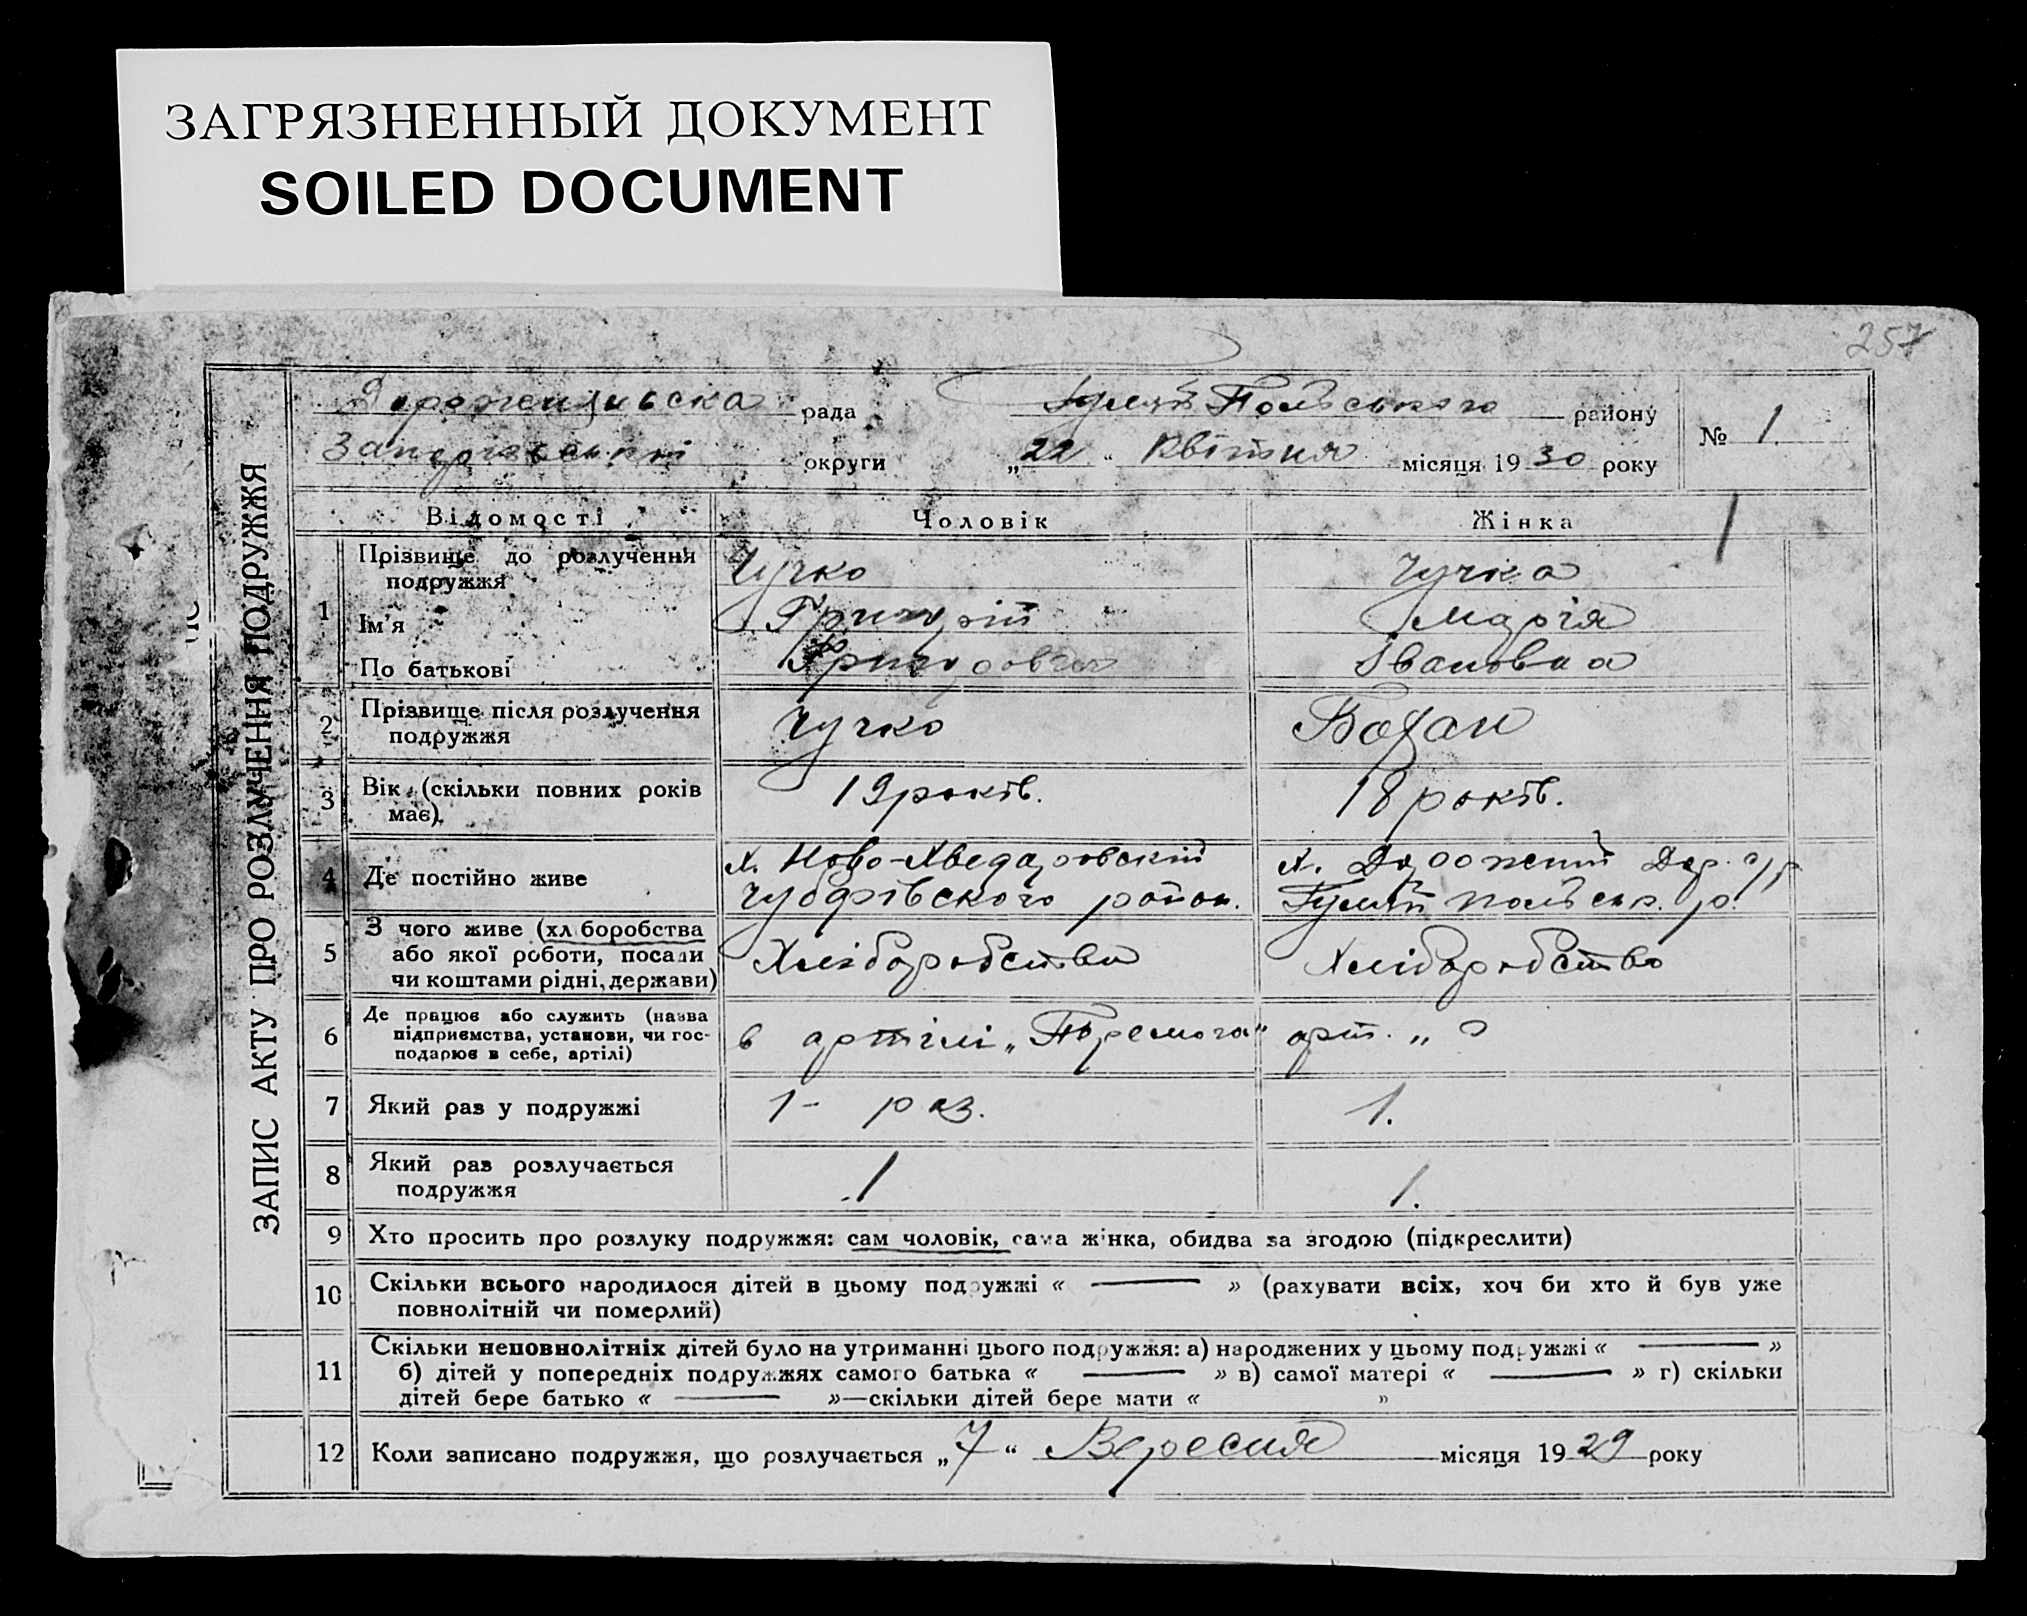 ЗАГРЯЗНЕННЫЙ ДОКУМЕНТ
SOILED DOCUMENT
257
ЗАПИС АКТУ ПРО РОЗЛУЧЕННЯ ПОДРУЖЖЯ
рада Гуляй Польського району
№ 1.
округи „22“ Квітня місяця 1930 року
Відомості Чоловік Жінка
1 Прізвище до розлучення подружжя Чучко Чучка
Ім'я Григорій Марія
По батькові Григоровіч Івановна
2 Прізвище після розлучення подружжя Чучко
3 Вік (скільки повних років має) 19 років. 18 років.
4 Де постійно живе х. Ново- х.
район. Гуляй Польськ. р.
5 З чого живе (хліборобства
або якої роботи, посади
чи коштами рідні, держави) Хліборобство Хліборобство
6 Де працює або служить (назва
підприємства, установи, чи гос-
подарює в себе, артілі) в артілі „Перемога“ арт. „
7 Який раз у подружжі 1- раз. 1.
8 Який раз розлучається
подружжя 1 1.
9 Хто просить про розлуку подружжя: сам чоловік, сама жінка, обидва за згодою (підкреслити)
10 Скільки всього народилося дітей в цьому подружжі « — » (рахувати всіх, хоч би хто й був уже
повнолітній чи померлий)
11 Скільки неповнолітніх дітей було на утриманні цього подружжя: а) народжених у цьому подружжі « — »
б) дітей у попередніх подружжях самого батька « — » в) самої матері « — » г) скільки
дітей бере батько « — »—скільки дітей бере мати « »
12 Коли записано подружжя, що розлучається „7“ Вересня місяця 1929 року